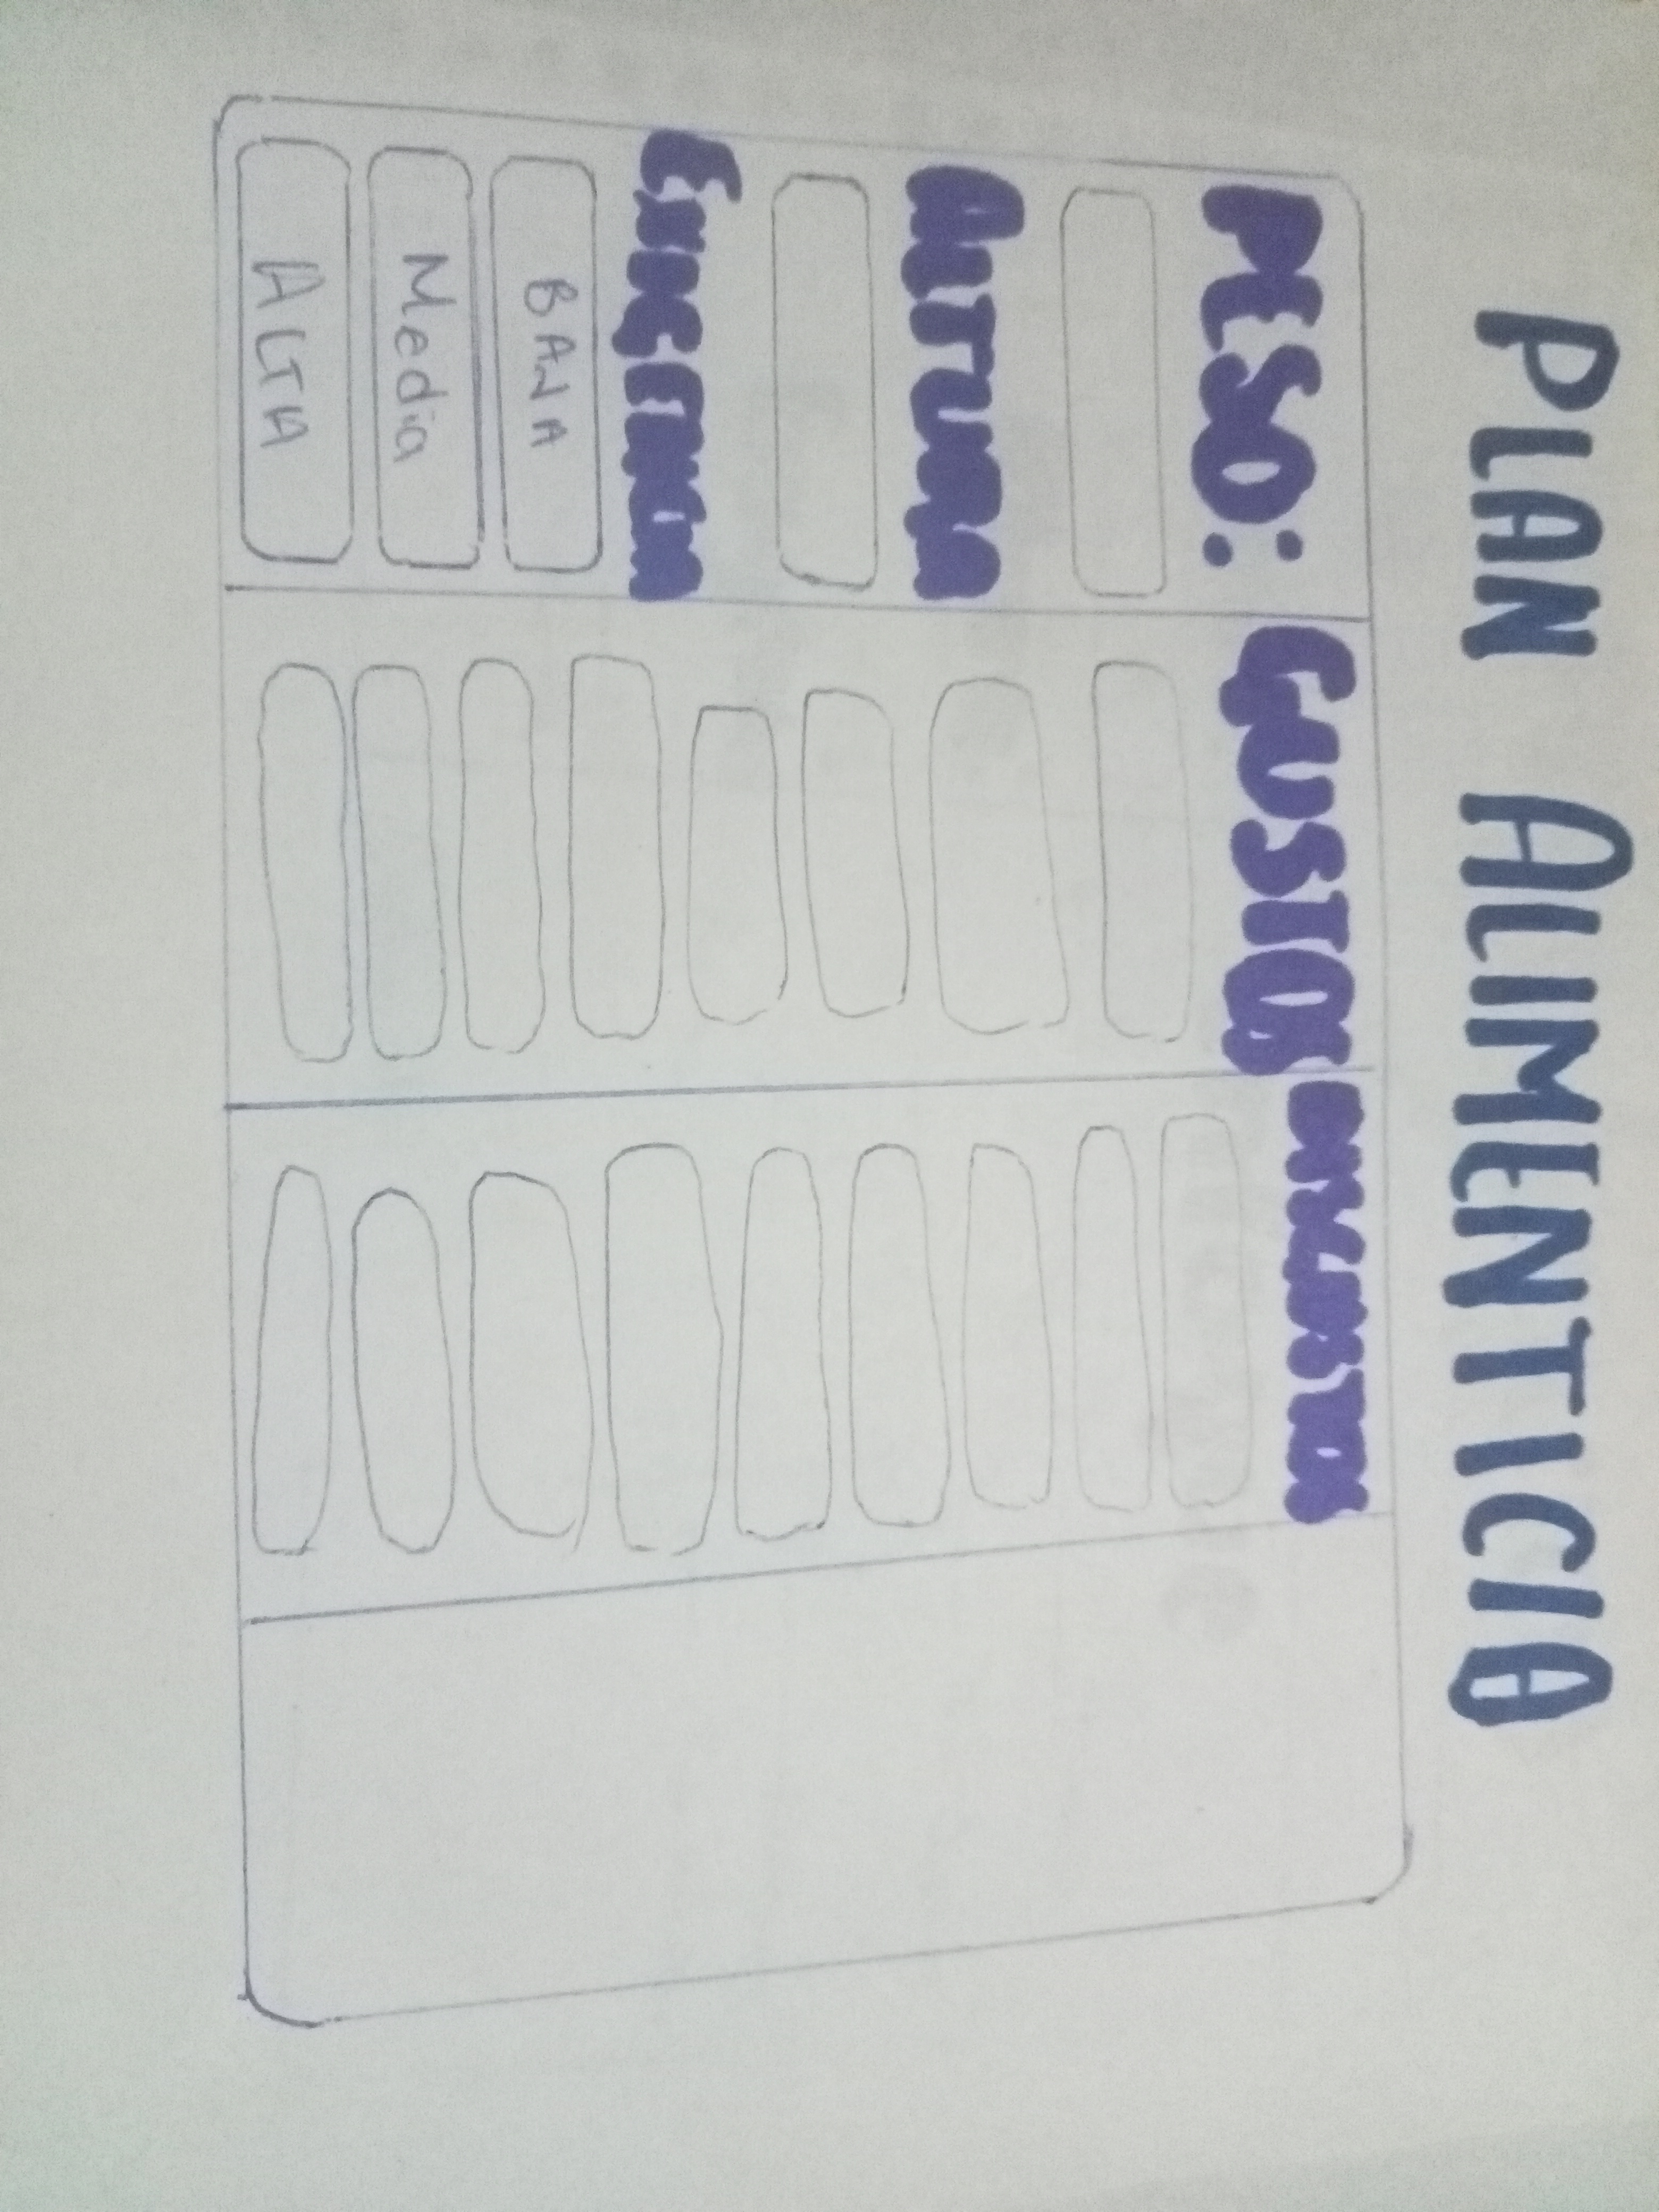 PLAN ALIMENTICIO
PESO:
ALTURA
EXIGENCIA
BAJA
Media
ALTA
GUSTOS
DISGUSTOS